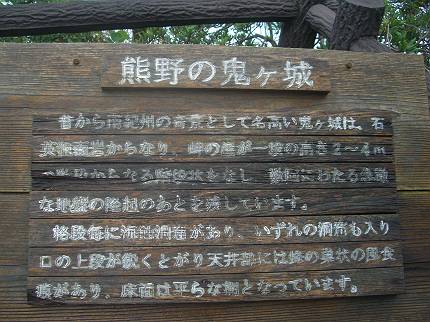 熊野の鬼ヶ城
昔から南紀州の奇景として名高い鬼ヶ城は、石
英粗面岩からなり、岬の崖が一段の高さ2〜4m
からなる階段状をなし 数回にわたる急激
な地盤の隆起のあとを残しています。
格段毎に海蝕洞窟があり、いずれの洞窟も入り
口の上段が鋭くとがり天井部には蜂の巣状の風食
痕があり、床面は平らな棚となっています。